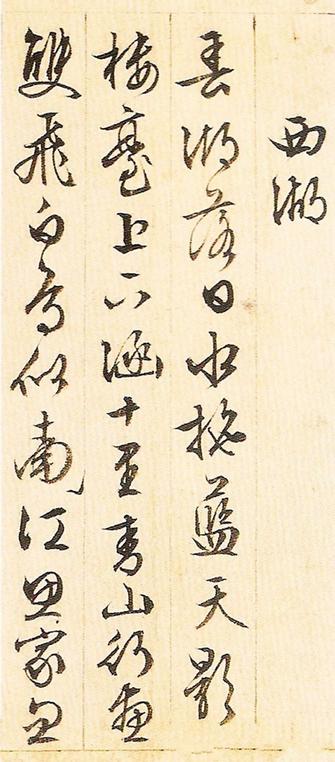 西湖
春湖落日水拖藍天影
樓臺上下涵十里青山行畫
雙飛白鳥似南江思家忽